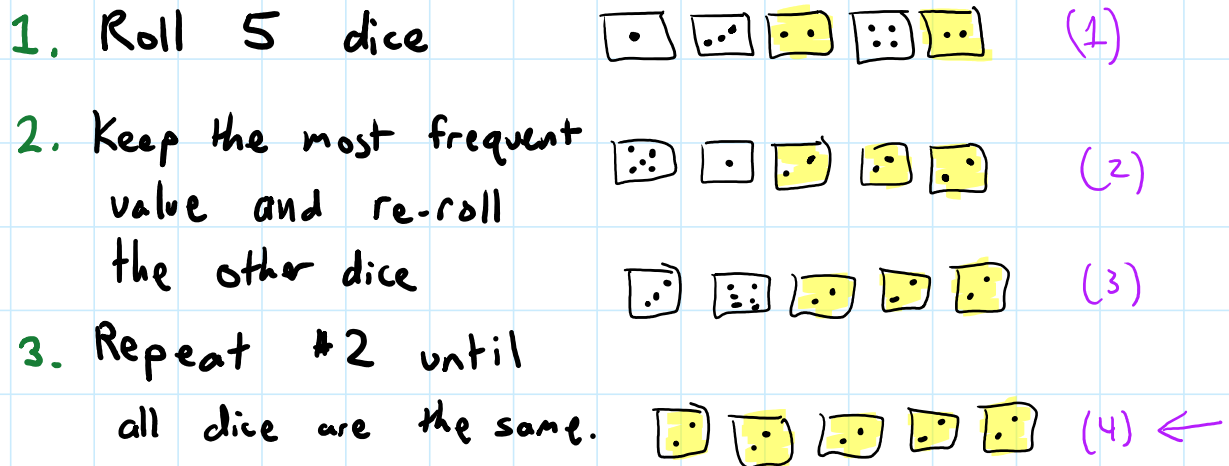 1. Roll 5 dice (1)
2. Keep the most frequent
value and re-roll (2)
the other dice (3)
3. Repeat #2 until
all dice are the same. (4) ←